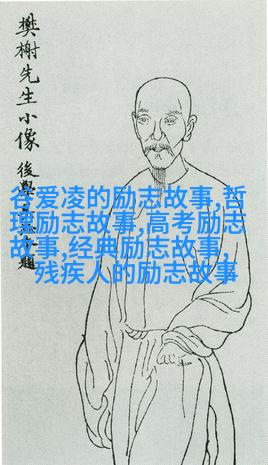 樊榭先生小像
後學
題
谷爱凌的励志故事,哲
理励志故事,高考励志
故事,经典励志故事,
残疾人的励志故事